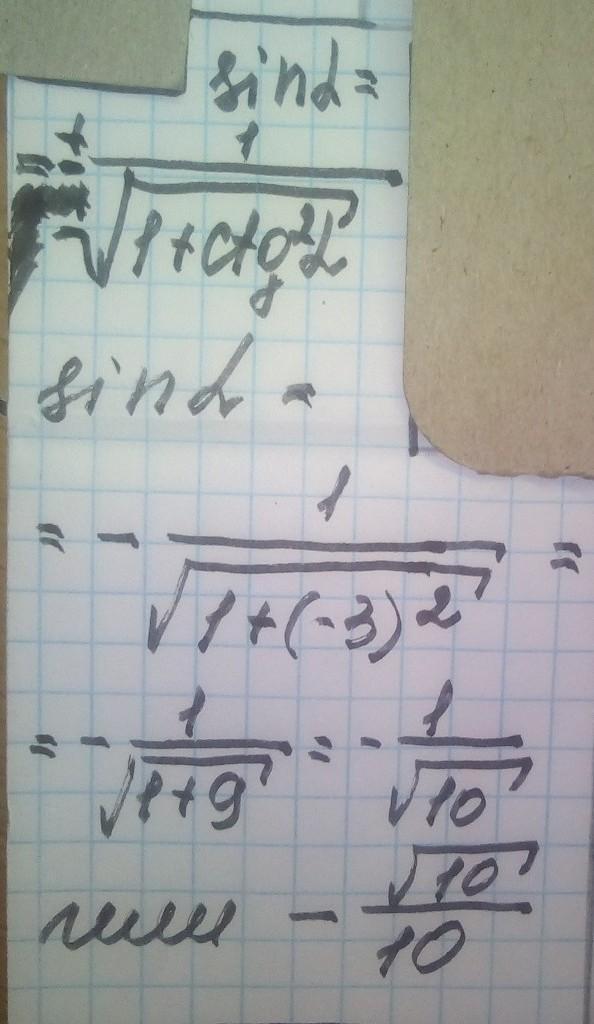 sinα =
= ± 1/√(1+ctg²α)
sinα =
= - 1/√(1+(-3)²) =
= - 1/√(1+9) = - 1/√10
или - √10/10